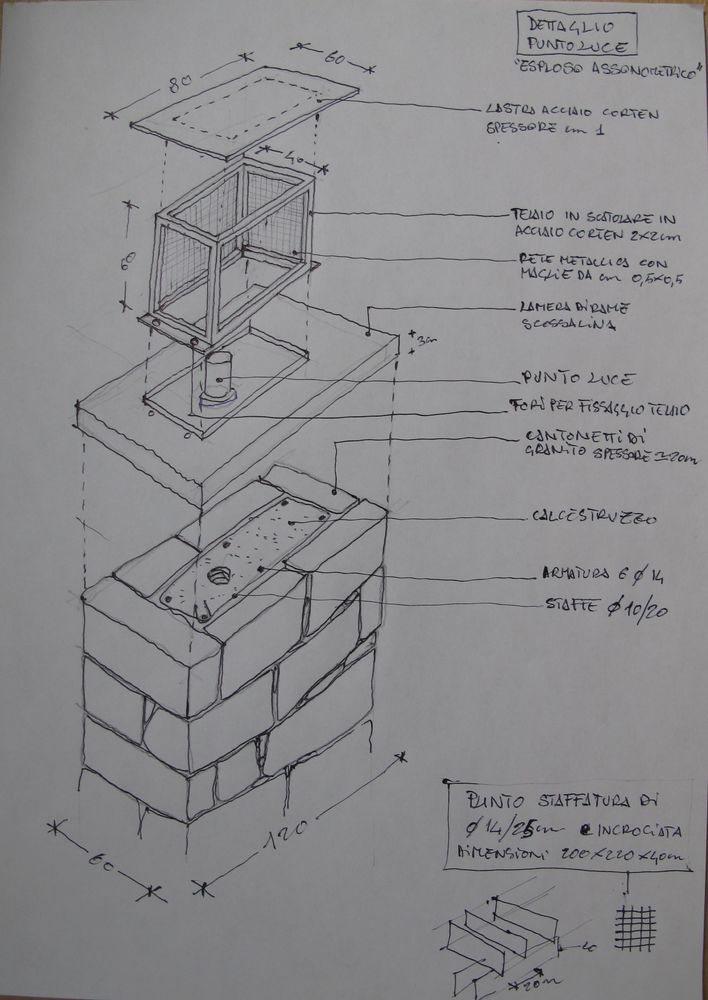 DETTAGLIO
PUNTO LUCE
"ESPLOSO ASSONOMETRICO"
80
60
LASTRA ACCIAIO CORTEN
SPESSORE cm 1
40
60
TELAIO IN SCATOLARE IN
ACCIAIO CORTEN 2x2cm
RETE METALLICA CON
MAGLIE DA cm 0,5x0,5
LAMERA DI RAME
SCOSSALINA
3cm
PUNTO LUCE
FORI PER FISSAGGIO TELAIO
CANTONETTI DI
GRANITO SPESSORE ≃20cm
CALCESTRUZZO
ARMATURA 6 Ø 14
STAFFE Ø 10/20
60
120
PUNTO STAFFATURA DI
Ø 14/25cm INCROCIATA
DIMENSIONI 200x220x40cm
20cm